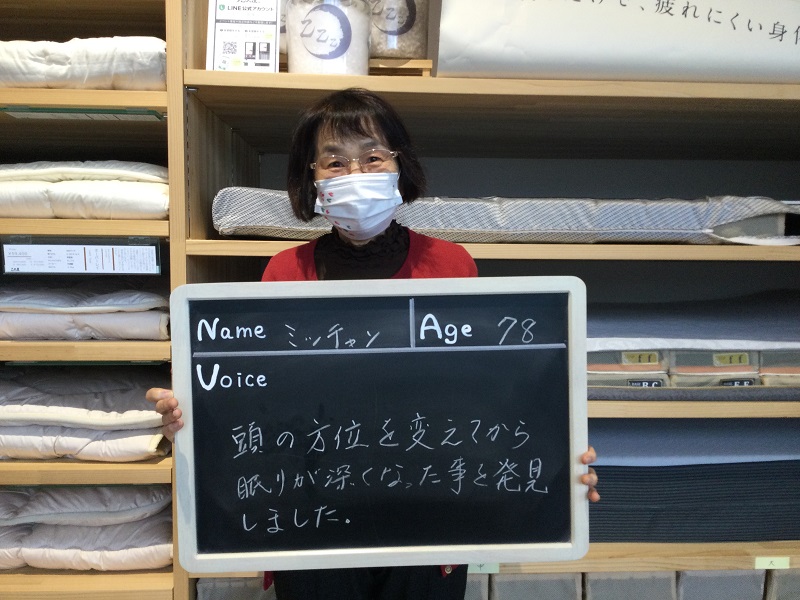 LINE公式アカウント
zzz
疲れにくい身体
Name ミッチャン
Age 78
Voice
頭の方位を変えてから
眠りが深くなった事を発見
しました。